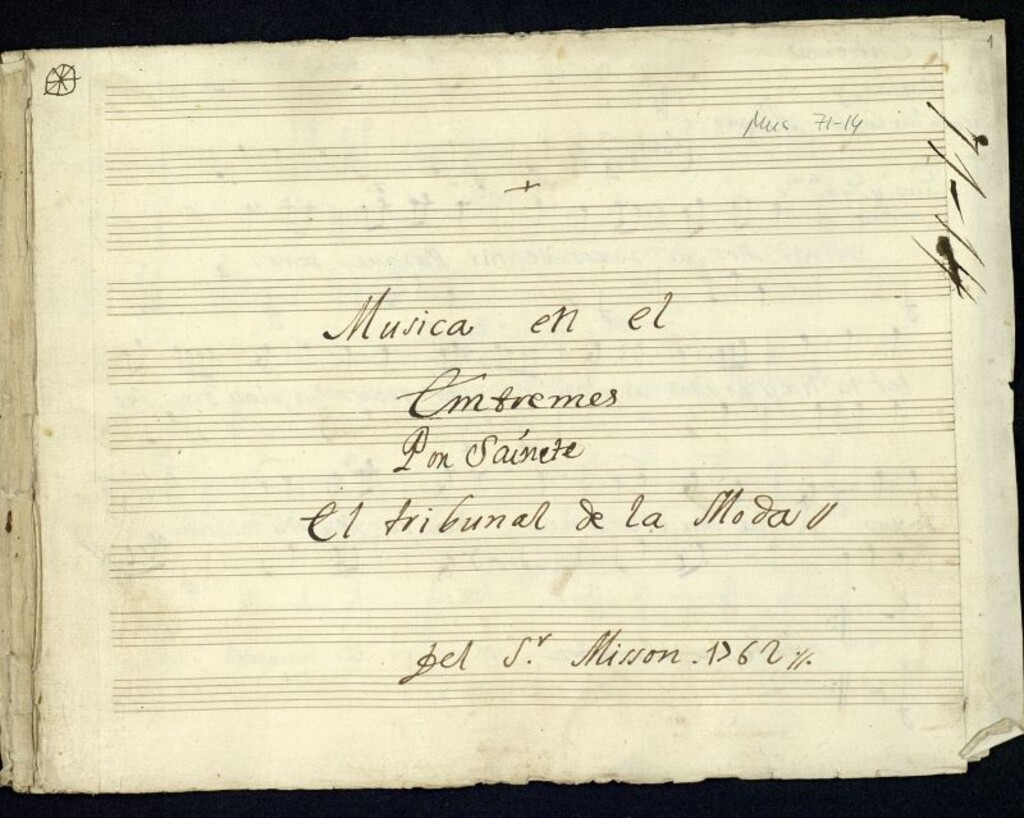 1
Mus 71-14
+
Musica en el
Entremes
Por Saínete
El tribunal de la Moda //
Del S.r Misson. 1762 //.